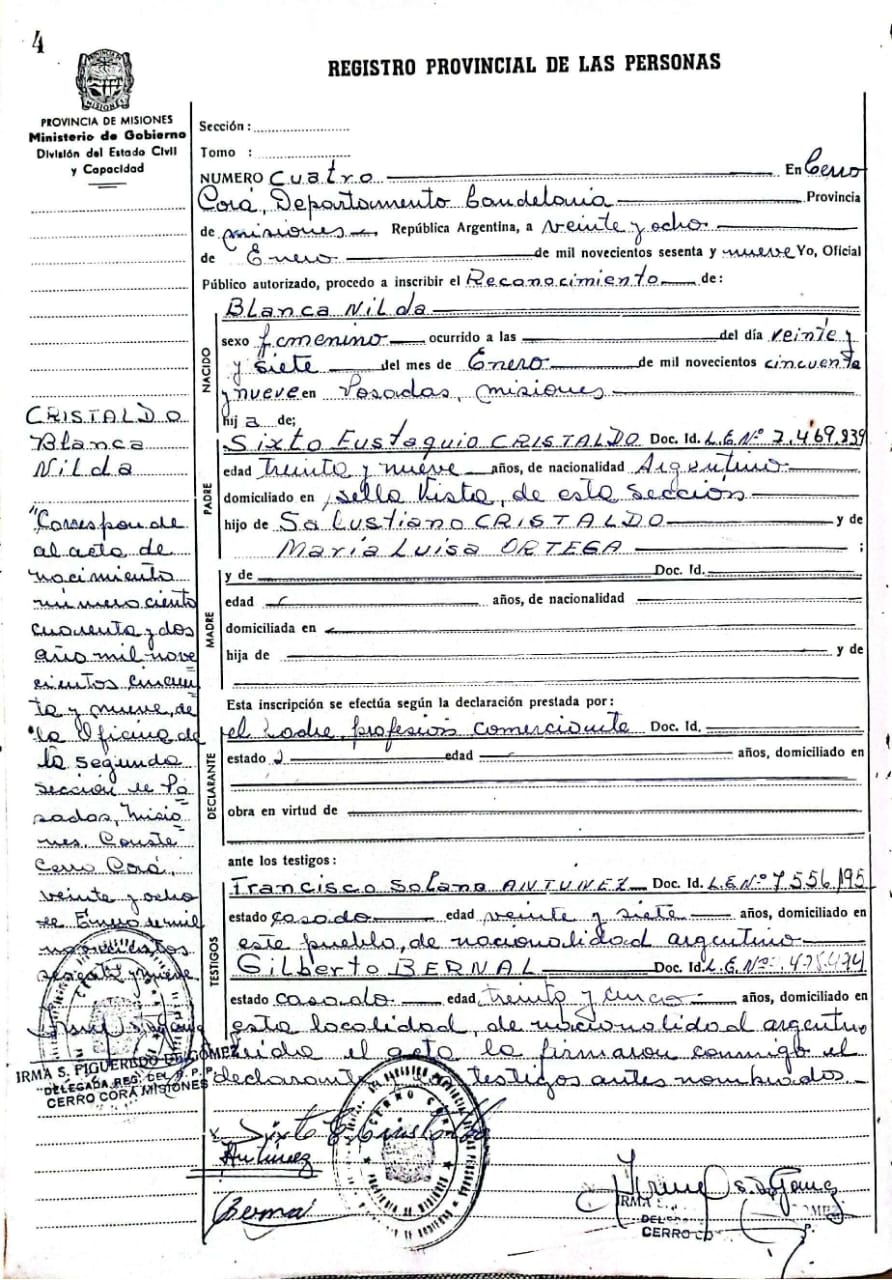 4
REGISTRO PROVINCIAL DE LAS PERSONAS
PROVINCIA DE MISIONES
Ministerio de Gobierno
División del Estado Civil
y Capacidad
Sección :
Tomo :
NUMERO Cuatro En Cerro
Corá, Departamento Candelaria Provincia
de misiones República Argentina, a veinte y ocho
de Enero de mil novecientos sesenta y nueve Yo, Oficial
Público autorizado, procedo a inscribir el Reconocimiento de:
NACIDO
Blanca Nilda
sexo femenino ocurrido a las del día veinte y
y siete del mes de Enero de mil novecientos cincuenta
y nueve en Posadas, misiones
hij a de;
PADRE
Sixto Eustaquio CRISTALDO Doc. Id. L.E.Nº 7.469.839
edad treinta y nueve años, de nacionalidad Argentino
domiciliado en Bella Vista, de esta sección
hijo de Salustiano CRISTALDO y de
María Luisa ORTEGA ;
MADRE
y de Doc. Id.
edad años, de nacionalidad
domiciliada en
hija de y de
Esta inscripción se efectúa según la declaración prestada por:
DECLARANTE
el Padre, profesión comerciante Doc. Id.
estado edad años, domiciliado en
obra en virtud de
ante los testigos:
TESTIGOS
Francisco Solano ANTUNEZ Doc. Id. L.E.Nº 7.556.195
estado casado edad veinte y siete años, domiciliado en
este pueblo, de nacionalidad argentino
Gilberto BERNAL Doc. Id. L.E.Nº
estado casado edad treinta y cinco años, domiciliado en
esta localidad, de nacionalidad argentino
Leida el acta la firmaron conmigo el
declarante y los testigos antes nombrados.
CRISTALDO
Blanca
Nilda
"Correspon de
al acta de
nacimiento
número ciento
cuarenta y dos
año mil nove
cientos cincuen
ta y nueve, de
la Oficina de
la segunda
sección de Po
sadas, Misio
nes. Conste
Cerro Corá,
veinte y ocho
de Enero de mil
novecientos
sesenta y nueve
IRMA S. FIGUEREDO DE GOMEZ
DELEGADA REG. DEL R. P. P.
CERRO CORÁ MISIONES
Sixto E. Cristaldo
Antúnez
Bernal
CERRO CORÁ
PROVINCIA DE MISIONES
IRMA
GOMEZ
CERRO CO